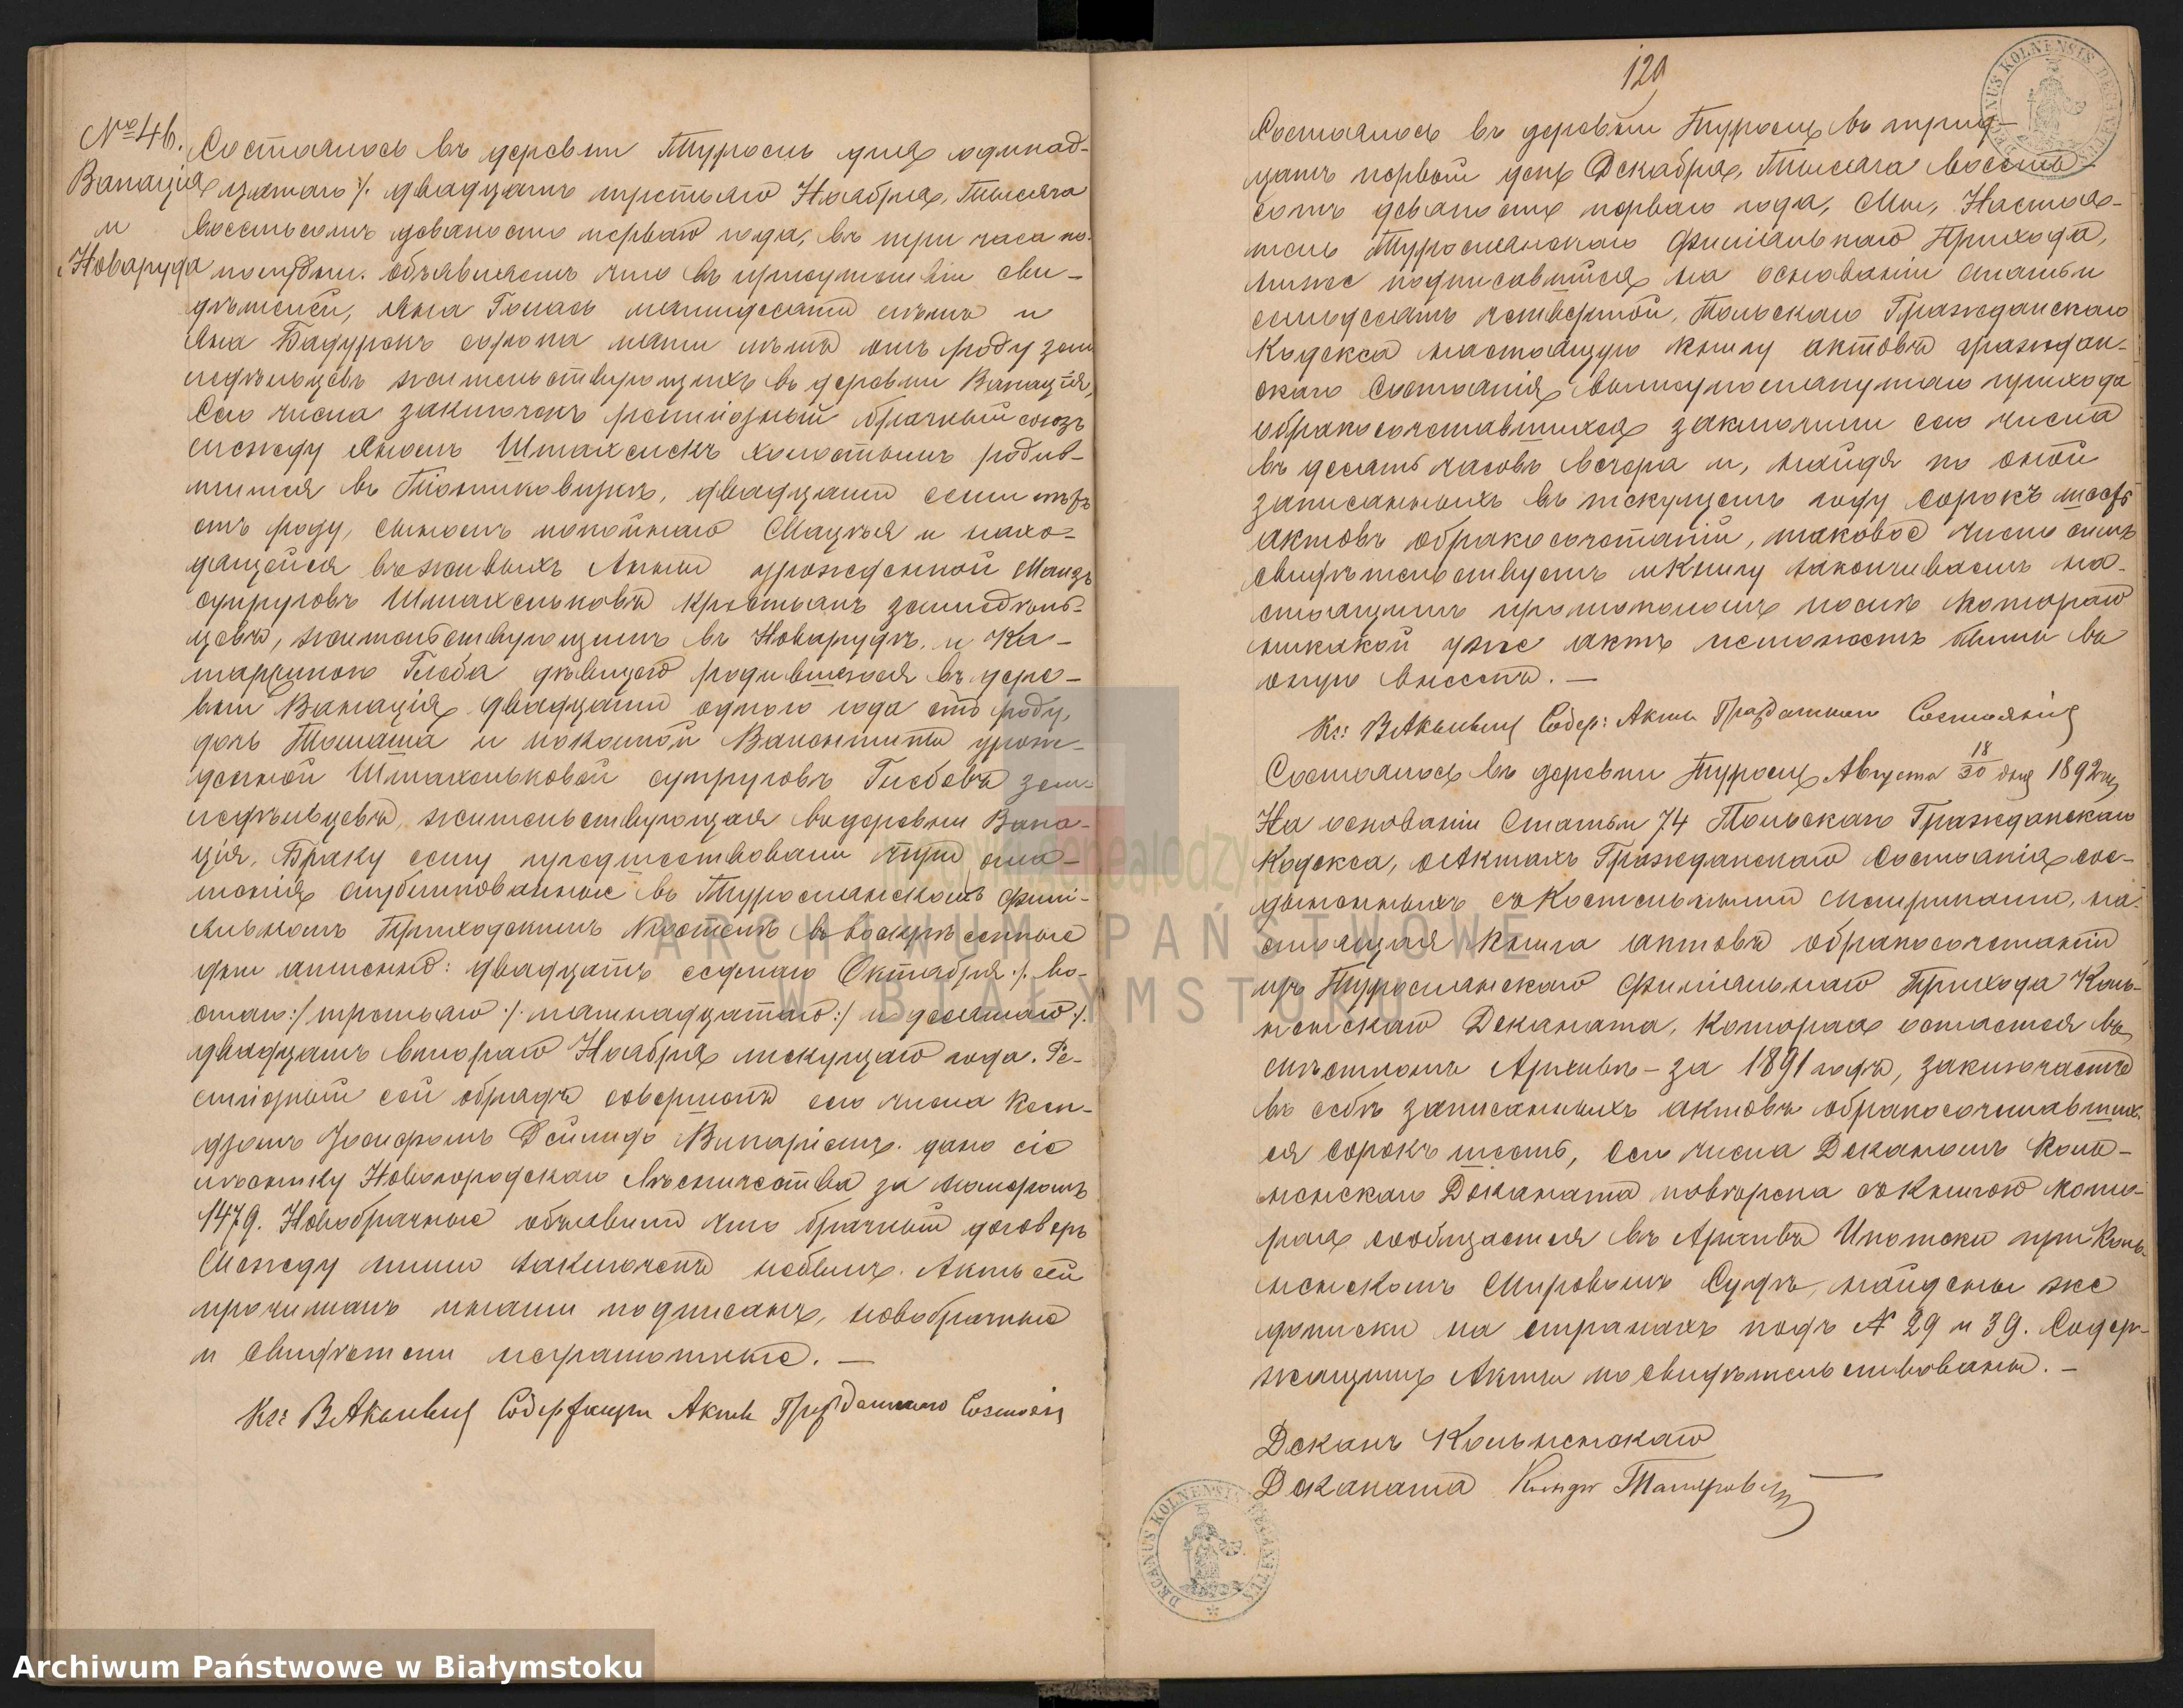 № 46.
Вакація
и
Новаруда
Состоялось въ деревни Туросль дня одинад-
цатаго /. двадцать третьяго Ноября, Тысяча
восемьсотъ девяносто перваго года, въ три часа по-
полудни. объявляемъ что въ присутствіи сви-
дѣтелей, Яна пятидесяти лѣтъ и
Яна сорока пяти лѣтъ отъ роду зем
ледѣльцевъ жительствующихъ въ деревни Вакація,
Сего числа заключенъ религіозный брачный союзъ
между холостымъ родив-
шимся въ двадцати семи лѣтъ
отъ роду, сыномъ покойнаго и нахо-
дящейся въ живыхъ Анны урожденной
супруговъ крестьянъ земледѣль-
цевъ, жительствующимъ въ Новарудѣ. и Ка-
таржиною Глеба дѣвицею родившеюся въ дере-
вни Вакація двадцати одного года отъ роду,
дочь Томаша и покойной Валентины урож-
денной супруговъ Глебовъ зем-
ледѣльцевъ, жительствующая въ деревни Вака-
ція. Браку сему предшествовали три огла-
шенія опубликованные въ Туросльнскомъ Филі-
альномъ Приходскимъ Костелѣ въ воскресенные
дни именно: двадцать седьмаго Октября /. во-
смаго :/ третьяго /. пятнадцатаго :/ и десятаго /.
двадцать втораго Ноября текущаго года. Ре-
лигіозный сей обрядъ совершенъ сего числа Ксен-
дзомъ Іосифомъ Викаріемъ. дано сіе
Новогородскаго Лѣсничества за номеромъ
1479. Новобрачные объявили что брачный договоръ
Между ними заключенъ небылъ. Актъ сей
прочитанъ нами подписанъ, новобрачные
и свидѣтели неграмотные. —
Кс: Содержащій Акты Гражданскаго Состоянія
129
Состоялось въ деревни Туросль въ трид-
цать первый день Декабря, Тысяча восемь-
сотъ девяносто перваго года, Мы, Настоя-
тель Туросльнскаго Филіальнаго Прихода,
ниже подписавшійся на основаніи статьи
семьдесятъ четвертой, Польскаго Гражданскаго
Кодекса настоящую книгу актовъ граждан-
скаго Состоянія вышеупомянутаго прихода
бракосочетавшихся заключили сего числа
въ десять часовъ вечера и, найдя по оной
записанныхъ въ текущемъ году сорокъ шесть
актовъ бракосочетаній, таковое число симъ
свидѣтельствуетъ и Книгу заканчиваемъ на-
стоящимъ протоколомъ послѣ котораго
никакой уже актъ неможетъ быть въ
оную внесенъ. —
Кс: Содер: Акты Гражданскаго Состоянія
Состоялось въ деревни Туросль Августа 18/30 дня 1892 года
На основаніи Статьи 74 Польскаго Гражданскаго
Кодекса, о Актахъ Гражданскаго Состоянія сое-
диненныхъ съ Костельными Метриками, на-
стоящая книга актовъ бракосочетаній
изъ Туросльнскаго Филіальнаго Прихода Коль-
ненскаго Деканата, которая остается въ
мѣстномъ Архивѣ – за 1891 годъ, заключаетъ
въ себѣ записанныхъ актовъ бракосочетавших-
ся сорокъ шесть, сего числа Деканомъ Коль-
ненскаго Деканата повѣрена съ Книгою кото-
рая сообщается въ Архивъ Ипотеки при Коль-
ненскомъ Мировомъ Судѣ, найдены же
дописки на страницахъ подъ № 29 и 39. Содер-
жащимъ Акты посвидѣтельствованы. –
Деканъ Кольненскаго
Деканата Ксендзъ
DECANUS KOLNENSIS DECANATUS
DECANUS KOLNENSIS DECANATUS
ARCHIWUM PAŃSTWOWE
W BIAŁYMSTOKU
Archiwum Państwowe w Białymstoku